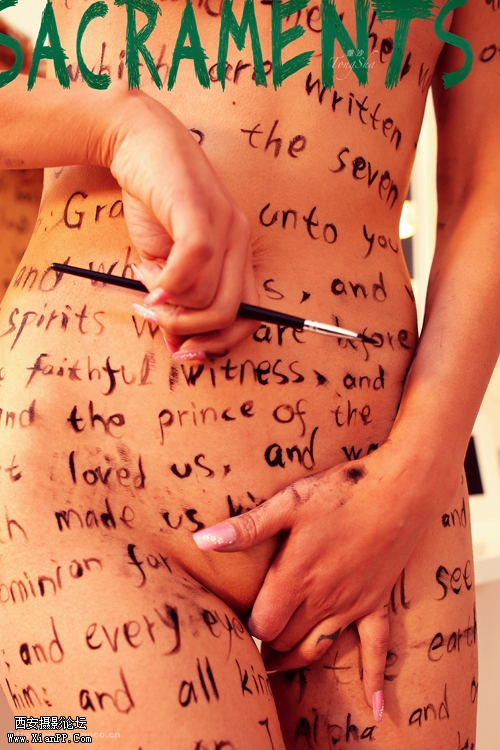 SACRAMENTS
they
which are
written
the seven
Gra unto you
and wh s, and
spirits are before
faithful witness, and
and the prince of the
loved us, and wa
made us ki
and
dominion for
all see
and every eye
the earth
him: and all kin
and
Alpha and
曈沙
TongSha
西安摄影论坛
www.XianPP.Com
co.cn